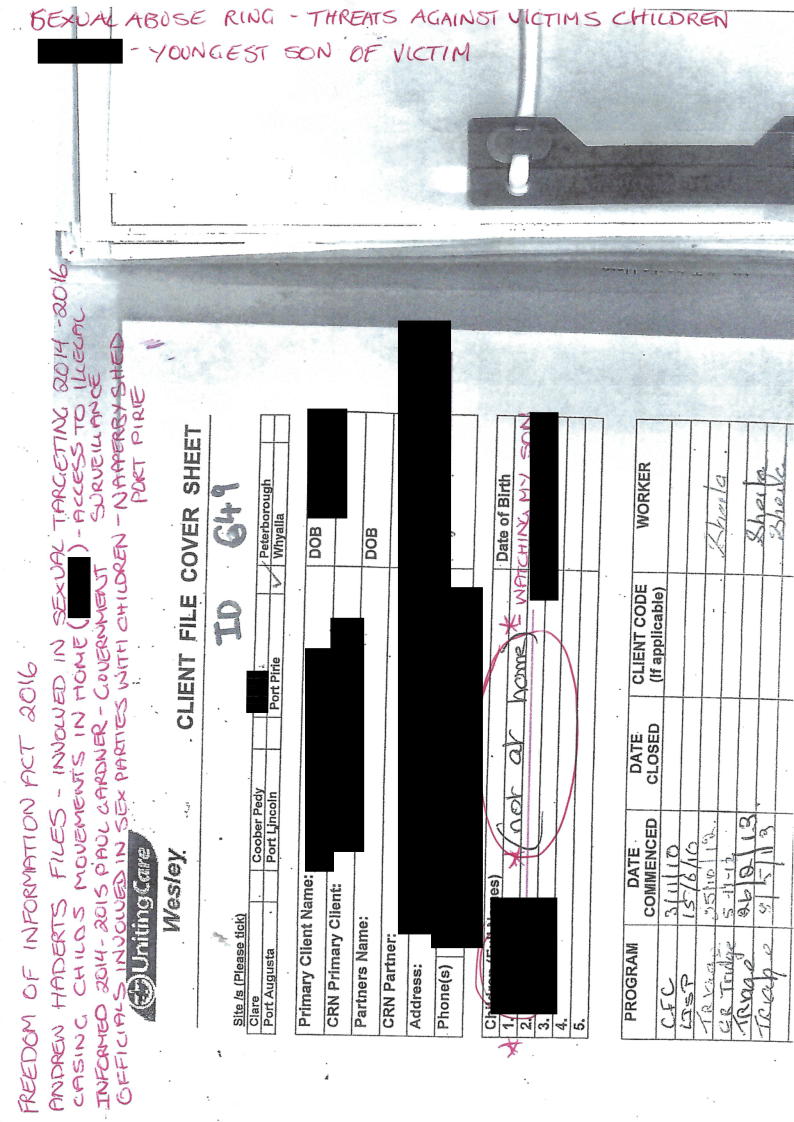 SEXUAL ABUSE RING - THREATS AGAINST VICTIMS CHILDREN
- YOUNGEST SON OF VICTIM
FREEDOM OF INFORMATION ACT 2016
ANDREW HADERTS FILES - INVOLVED IN SEXUAL TARGETING 2014-2016
CASING CHILDS MOVEMENTS IN HOME ( ) - ACCESS TO ILLEGAL
SURVEILLANCE
INFORMED 2014-2015 PAUL GARDNER - GOVERNMENT
OFFICIALS INVOLVED IN SEX PARTIES WITH CHILDREN - NAPPERBY SHED
PORT PIRIE
UnitingCare
Wesley
CLIENT FILE COVER SHEET
ID 649
Site is (Please tick)
Clare Coober Pedy Peterborough
Port Augusta Port Lincoln Port Pirie ✓ Whyalla
Primary Client Name: DOB
CRN Primary Client:
Partners Name: DOB
CRN Partner:
Address:
Phone(s)
Date of Birth
* 1. * (not at home) * WATCHING MY SON
2.
3.
4.
5.
PROGRAM DATE COMMENCED DATE CLOSED CLIENT CODE (If applicable) WORKER
CFC 3/11/10
15/6/10
Triage 25/10/12 Sheila
Triage 5-11-12
Triage 26/2/13 Sheila
Triage 9/5/13 Sheila